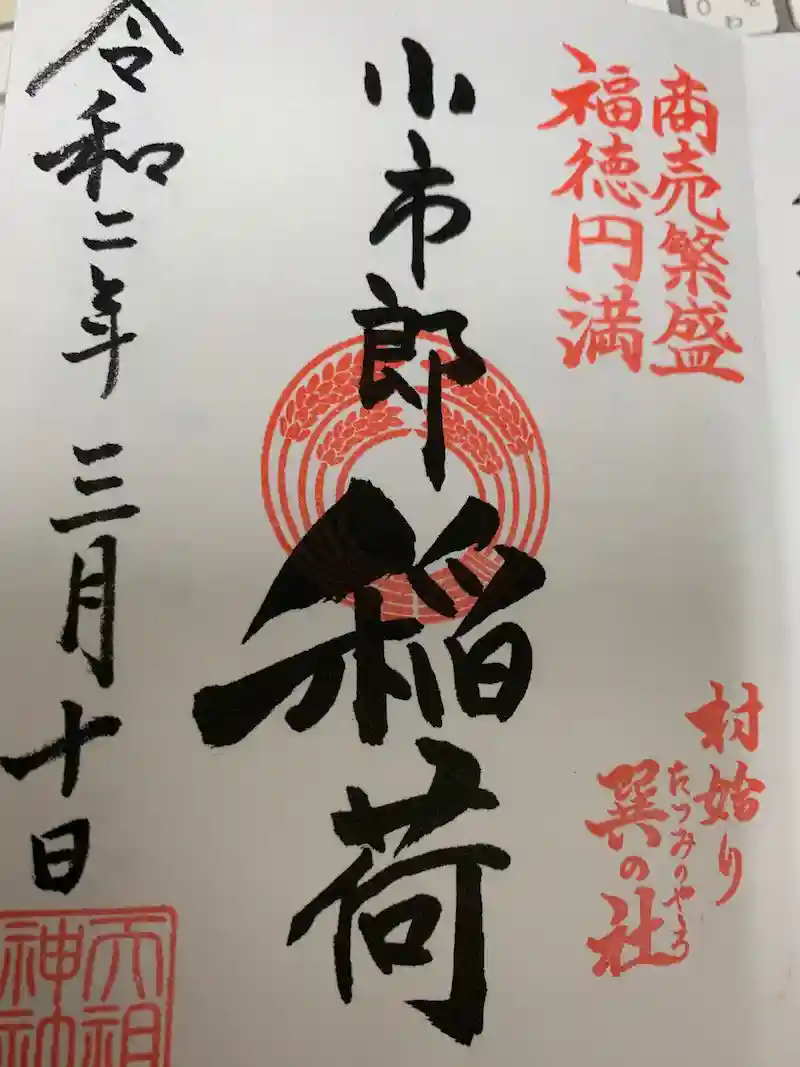 商売繁盛
福徳円満
村始り
巽の社
たつみのやしろ
小市郎稲荷
令和二年三月十日
天祖
神社